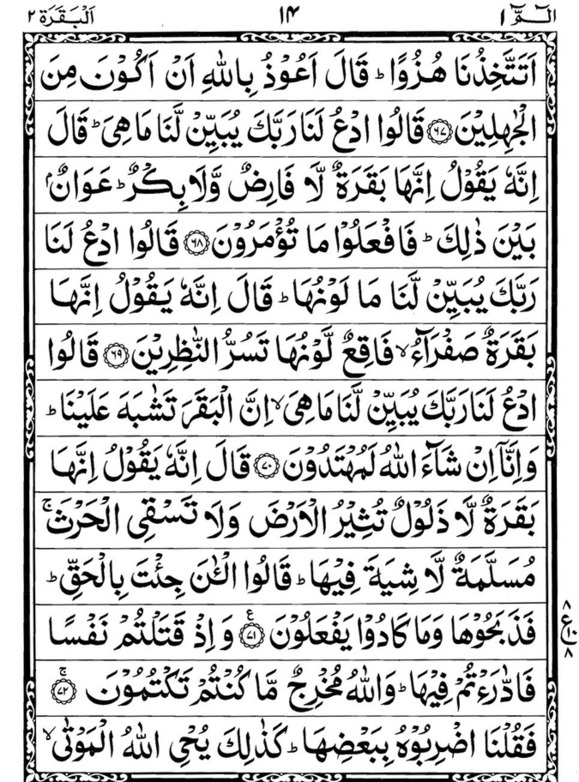 الٓمّٓ ١ ١٤ اَلْبَقَرَة ٢
اَتَتَّخِذُنَا هُزُوًا ؕ قَالَ اَعُوْذُ بِاللّٰهِ اَنْ اَكُوْنَ مِنَ
الْجٰهِلِيْنَ ۝۶۷ قَالُوا ادْعُ لَنَا رَبَّكَ يُبَيِّنْ لَّنَا مَا هِيَ ؕ قَالَ
اِنَّهٗ يَقُوْلُ اِنَّهَا بَقَرَةٌ لَّا فَارِضٌ وَّلَا بِكْرٌ ؕ عَوَانٌۢ
بَيْنَ ذٰلِكَ ؕ فَافْعَلُوْا مَا تُؤْمَرُوْنَ ۝۶۸ قَالُوا ادْعُ لَنَا
رَبَّكَ يُبَيِّنْ لَّنَا مَا لَوْنُهَا ؕ قَالَ اِنَّهٗ يَقُوْلُ اِنَّهَا
بَقَرَةٌ صَفْرَآءُ ۙ فَاقِعٌ لَّوْنُهَا تَسُرُّ النّٰظِرِيْنَ ۝۶۹ قَالُوا
ادْعُ لَنَا رَبَّكَ يُبَيِّنْ لَّنَا مَا هِيَ ۙ اِنَّ الْبَقَرَ تَشٰبَهَ عَلَيْنَا ؕ
وَاِنَّاۤ اِنْ شَآءَ اللّٰهُ لَمُهْتَدُوْنَ ۝۷۰ قَالَ اِنَّهٗ يَقُوْلُ اِنَّهَا
بَقَرَةٌ لَّا ذَلُوْلٌ تُثِيْرُ الْاَرْضَ وَلَا تَسْقِي الْحَرْثَ ۚ
مُسَلَّمَةٌ لَّا شِيَةَ فِيْهَا ؕ قَالُوا الْـٰٔنَ جِئْتَ بِالْحَقِّ ؕ
فَذَبَحُوْهَا وَمَا كَادُوْا يَفْعَلُوْنَ ۝۷۱ ع وَاِذْ قَتَلْتُمْ نَفْسًا
٨ ع ١٠ ٨
فَادّٰرَءْتُمْ فِيْهَا ؕ وَاللّٰهُ مُخْرِجٌ مَّا كُنْتُمْ تَكْتُمُوْنَ ۝۷۲ ۚ
فَقُلْنَا اضْرِبُوْهُ بِبَعْضِهَا ؕ كَذٰلِكَ يُحْيِ اللّٰهُ الْمَوْتٰى ۙ